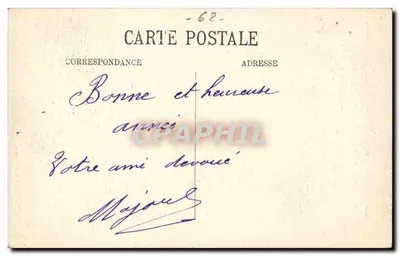 -62-
CARTE POSTALE
CORRESPONDANCE ADRESSE
Bonne et heureuse
année
CPAPHIL
Votre ami dévoué